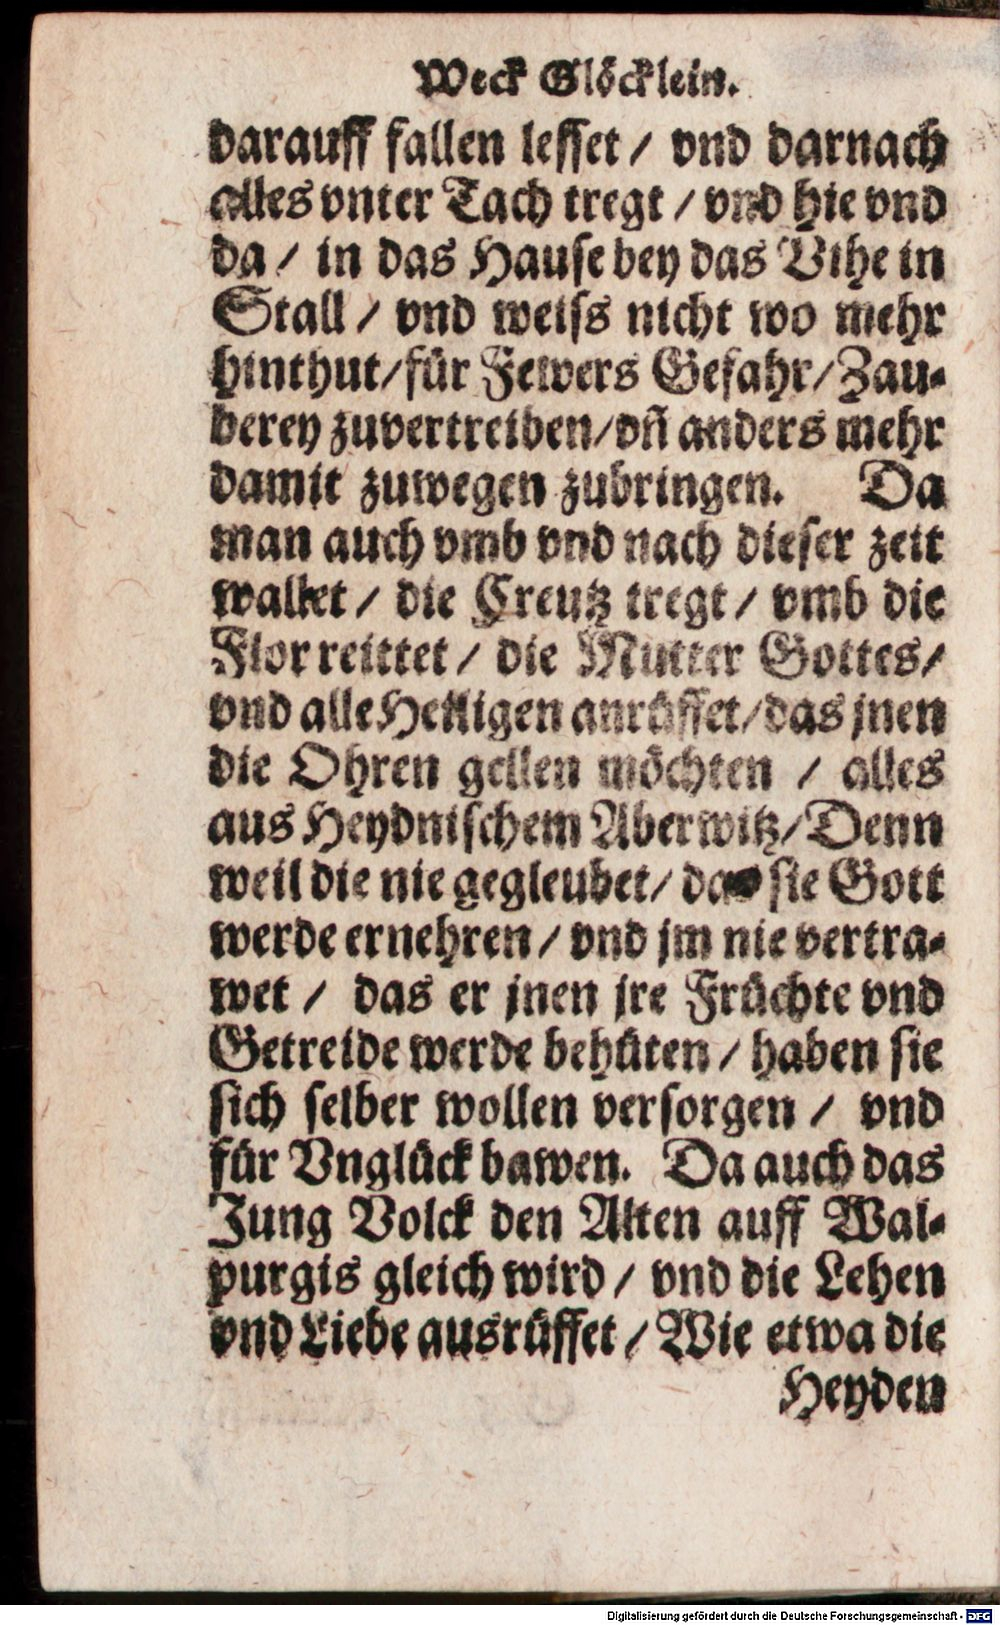 Weck Glöcklein.
darauff fallen lesset / vnd darnach
alles vnter Tach tregt / vnd hie vnd
da / in das Hause bey das Vihe in
Stall / vnd weiss nicht wo mehr
hinthut / für Fewers Gefahr / Zau-
berey zuvertreiben / vñ anders mehr
damit zuwegen zubringen. Da
man auch vmb vnd nach dieser zeit
wallet / die Creutz tregt / vmb die
Flor reittet / die Mutter Gottes /
vnd alle Heiligen anrüffet / das jnen
die Ohren gellen möchten / alles
aus Heydnischem Aberwitz / Denn
weil die nie gegleubet / das sie Gott
werde ernehren / vnd jm nie vertra-
wet / das er jnen jre Früchte vnd
Getreide werde behüten / haben sie
sich selber wollen versorgen / vnd
für Vnglück bawen. Da auch das
Jung Volck den Alten auff Wal-
purgis gleich wird / vnd die Lehen
vnd Liebe ausrüffet / Wie etwa die
Heyden
Digitalisierung gefördert durch die Deutsche Forschungsgemeinschaft - DFG